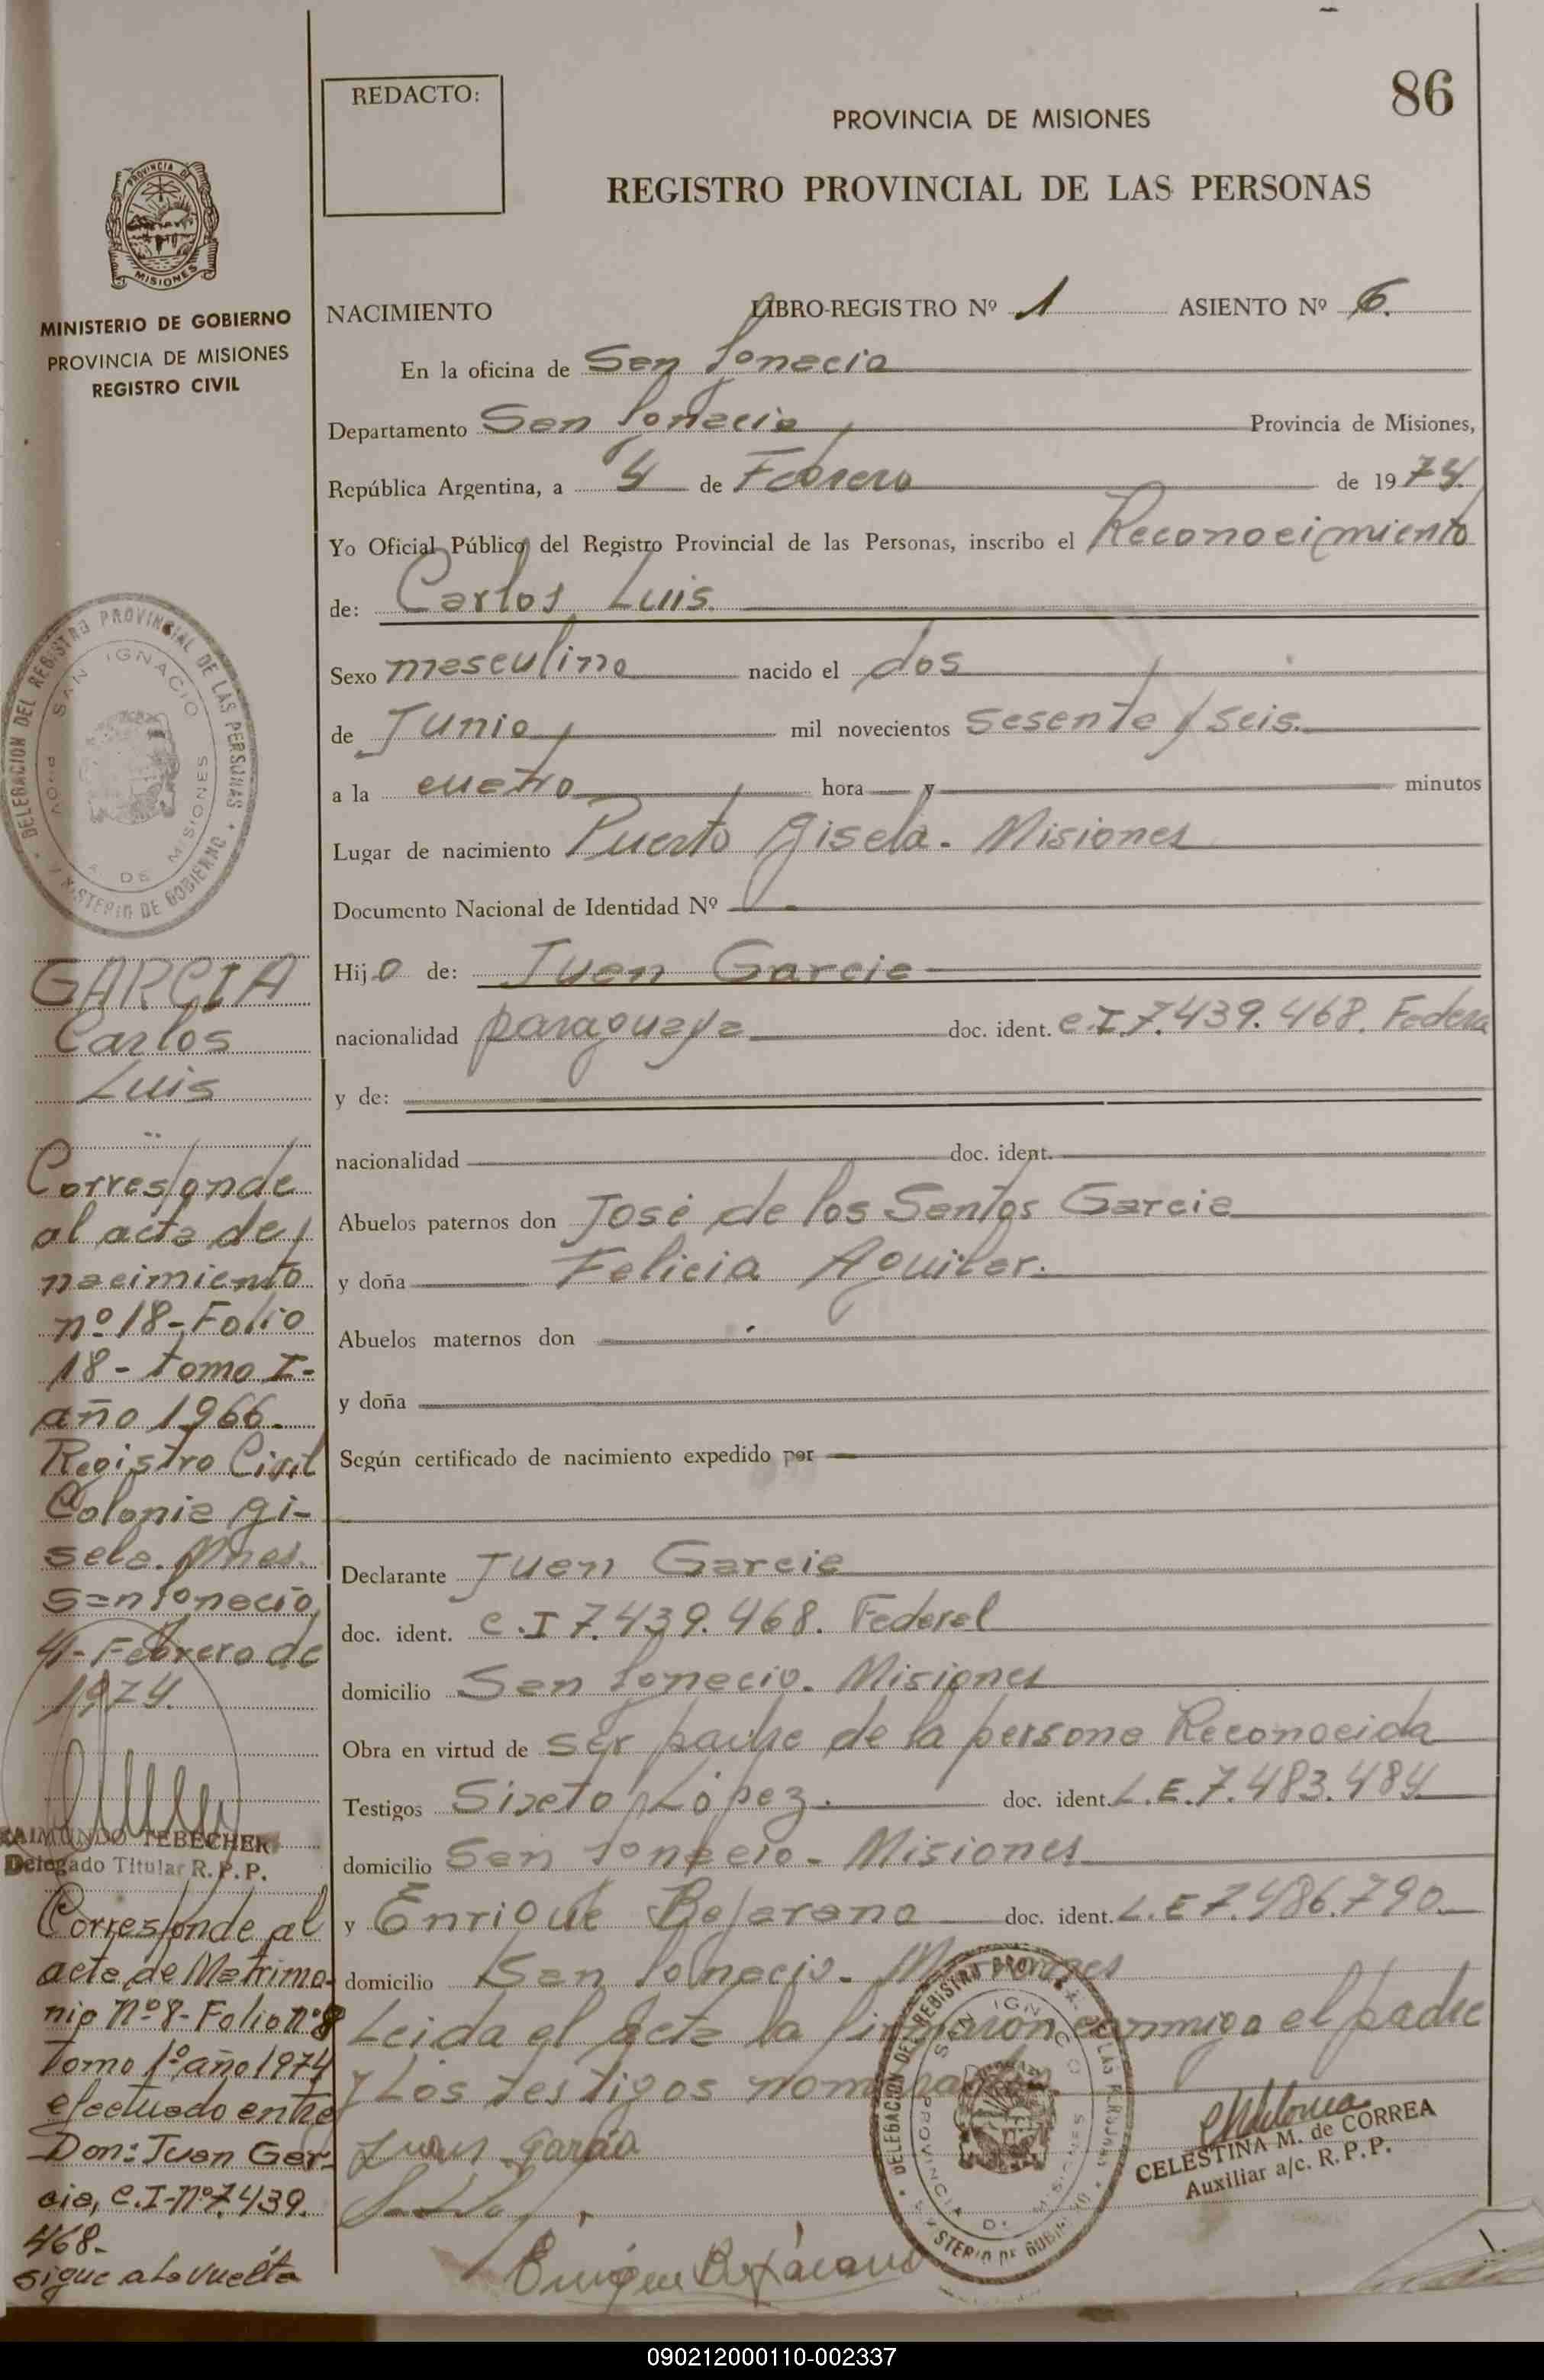 REDACTO:
86
PROVINCIA DE MISIONES
REGISTRO PROVINCIAL DE LAS PERSONAS
PROVINCIA DE
MISIONES
MINISTERIO DE GOBIERNO
PROVINCIA DE MISIONES
REGISTRO CIVIL
NACIMIENTO LIBRO-REGISTRO Nº 1 ASIENTO Nº 6.
En la oficina de San Ignacio
Departamento San Ignacio Provincia de Misiones,
República Argentina, a 4 de Febrero de 1974.
Yo Oficial Público del Registro Provincial de las Personas, inscribo el Reconocimiento
de: Carlos Luis.
Sexo masculino nacido el dos
de Junio mil novecientos sesenta y seis.
a la cuatro hora y minutos
Lugar de nacimiento Puerto Gisela. Misiones
Documento Nacional de Identidad Nº
Hijo de: Juan Garcia
nacionalidad paraguaya doc. ident. C.I.7.439.468. Federa
y de:
nacionalidad doc. ident.
Abuelos paternos don José de los Santos Garcia
y doña Felicia Aguilar.
Abuelos maternos don
y doña
Según certificado de nacimiento expedido por
Declarante Juan Garcia
doc. ident. C.I 7.439.468. Federal
domicilio San Ignacio. Misiones
Obra en virtud de ser padre de la persona Reconocida
Testigos Sixto López. doc. ident. L.E.7.483.484.
domicilio San Ignacio - Misiones
y Enrique Bejarano doc. ident. L.E 7.486.790.
domicilio San Ignacio. Misiones
Leida el Acta la firmaron conmigo el padre
y Los testigos nombrados.
Juan Garcia
Enrique Bejarano
CELESTINA M. de CORREA
Auxiliar a/c. R.P.P.
DELEGACION DEL REGISTRO PROVINCIAL DE LAS PERSONAS
SAN IGNACIO
PROVINCIA DE MISIONES
MINISTERIO DE GOBIERNO
GARCIA
Carlos
Luis
Corresponde
al acta de
nacimiento
nº 18-Folio
18- tomo I-
año 1966.
Registro Civil
Colonia Gi-
sela. Mnes.
San Ignacio,
4-Febrero de
1974.
RAIMUNDO TEBECHER
Delegado Titular R.P.P.
Corresponde al
acta de Matrimo-
nio Nº8-Folio nº8
Tomo 1º año 1974
efectuado entre
Don: Juan Gar-
cia, C.I-nº7.439.
468-
sigue a la vuelta
DELEGACION DEL REGISTRO PROVINCIAL DE LAS PERSONAS
SAN IGNACIO
PROVINCIA DE MISIONES
MINISTERIO DE GOBIERNO
090212000110-002337